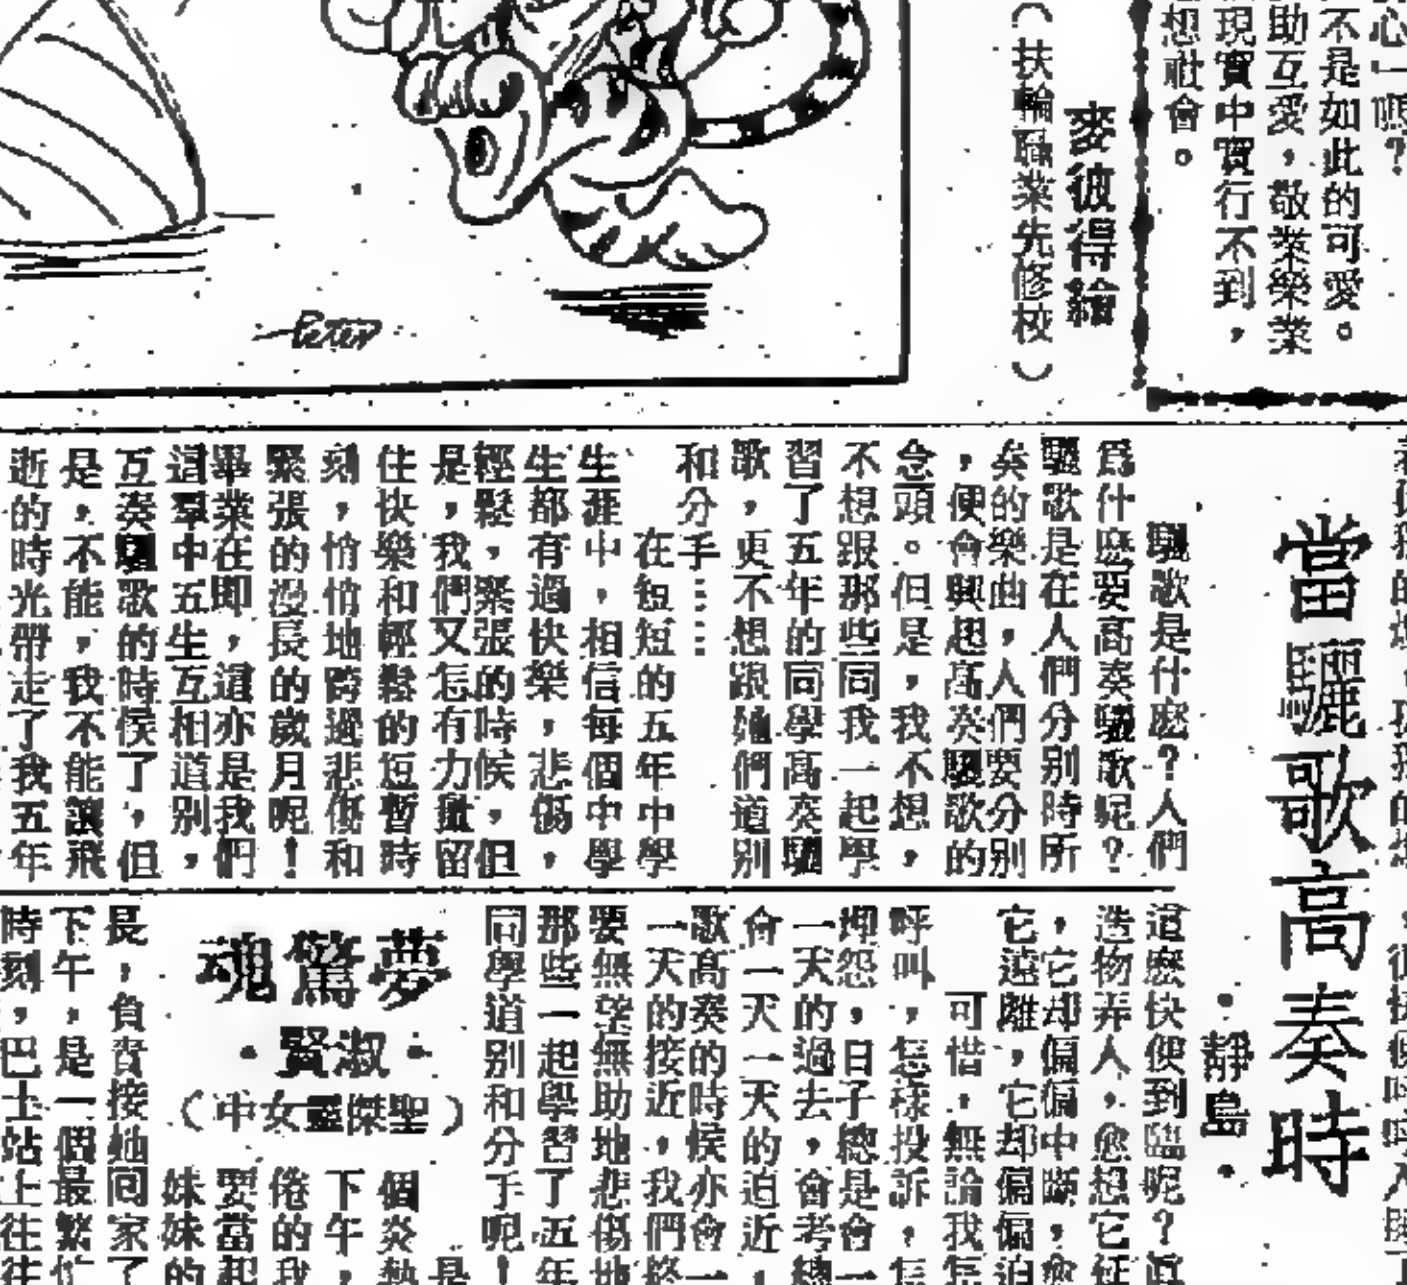 心」嗎?
不是如此的可愛。
助互愛,敬業樂業
現實中實行不到,
想社會。
麥彼得繪
(扶輪職業先修校)
Peter
當驪歌高奏時
·靜島·
驪歌是什麼?人們
爲什麼要高奏驪歌呢?
驪歌是在人們分別時所
奏的樂曲,人們要分別
,便會興起高奏驪歌的
念頭。但是,我不想,
不想跟那些同我一起學
習了五年的同學高奏驪
歌,更不想跟她們道別
和分手……
在短短的五年中學
生涯中,相信每個中學
生都有過快樂,悲傷,
輕鬆,緊張的時候,但
是,我們又怎有力量留
住快樂和輕鬆的短暫時
刻,悄悄地跨過悲傷和
緊張的漫長的歲月呢!
畢業在即,這亦是我們
這羣中五生互相道別,
互奏驪歌的時候了,但
是,不能,我不能讓飛
逝的時光帶走了我五年
這麼快便到臨呢?眞
造物弄人,愈想它
,它却偏偏中斷,愈
它遠離,它却偏偏迫
可惜,無論我怎
呼叫,怎樣投訴,怎
埋怨,日子總是會一
一天的過去,會考總
會一天一天的迫近,
歌高奏的時候亦會一
一天的接近,我們終
要無望無助地悲傷地
那些一起學習了五年
同學道別和分手呢!
夢驚魂
·淑賢·
(聖傑靈女中)
是
個炎熱
下午,
倦的我
要當起
妹妹的
長,負責接她回家了
下午,是一個最繁忙
時刻,巴士站上往往